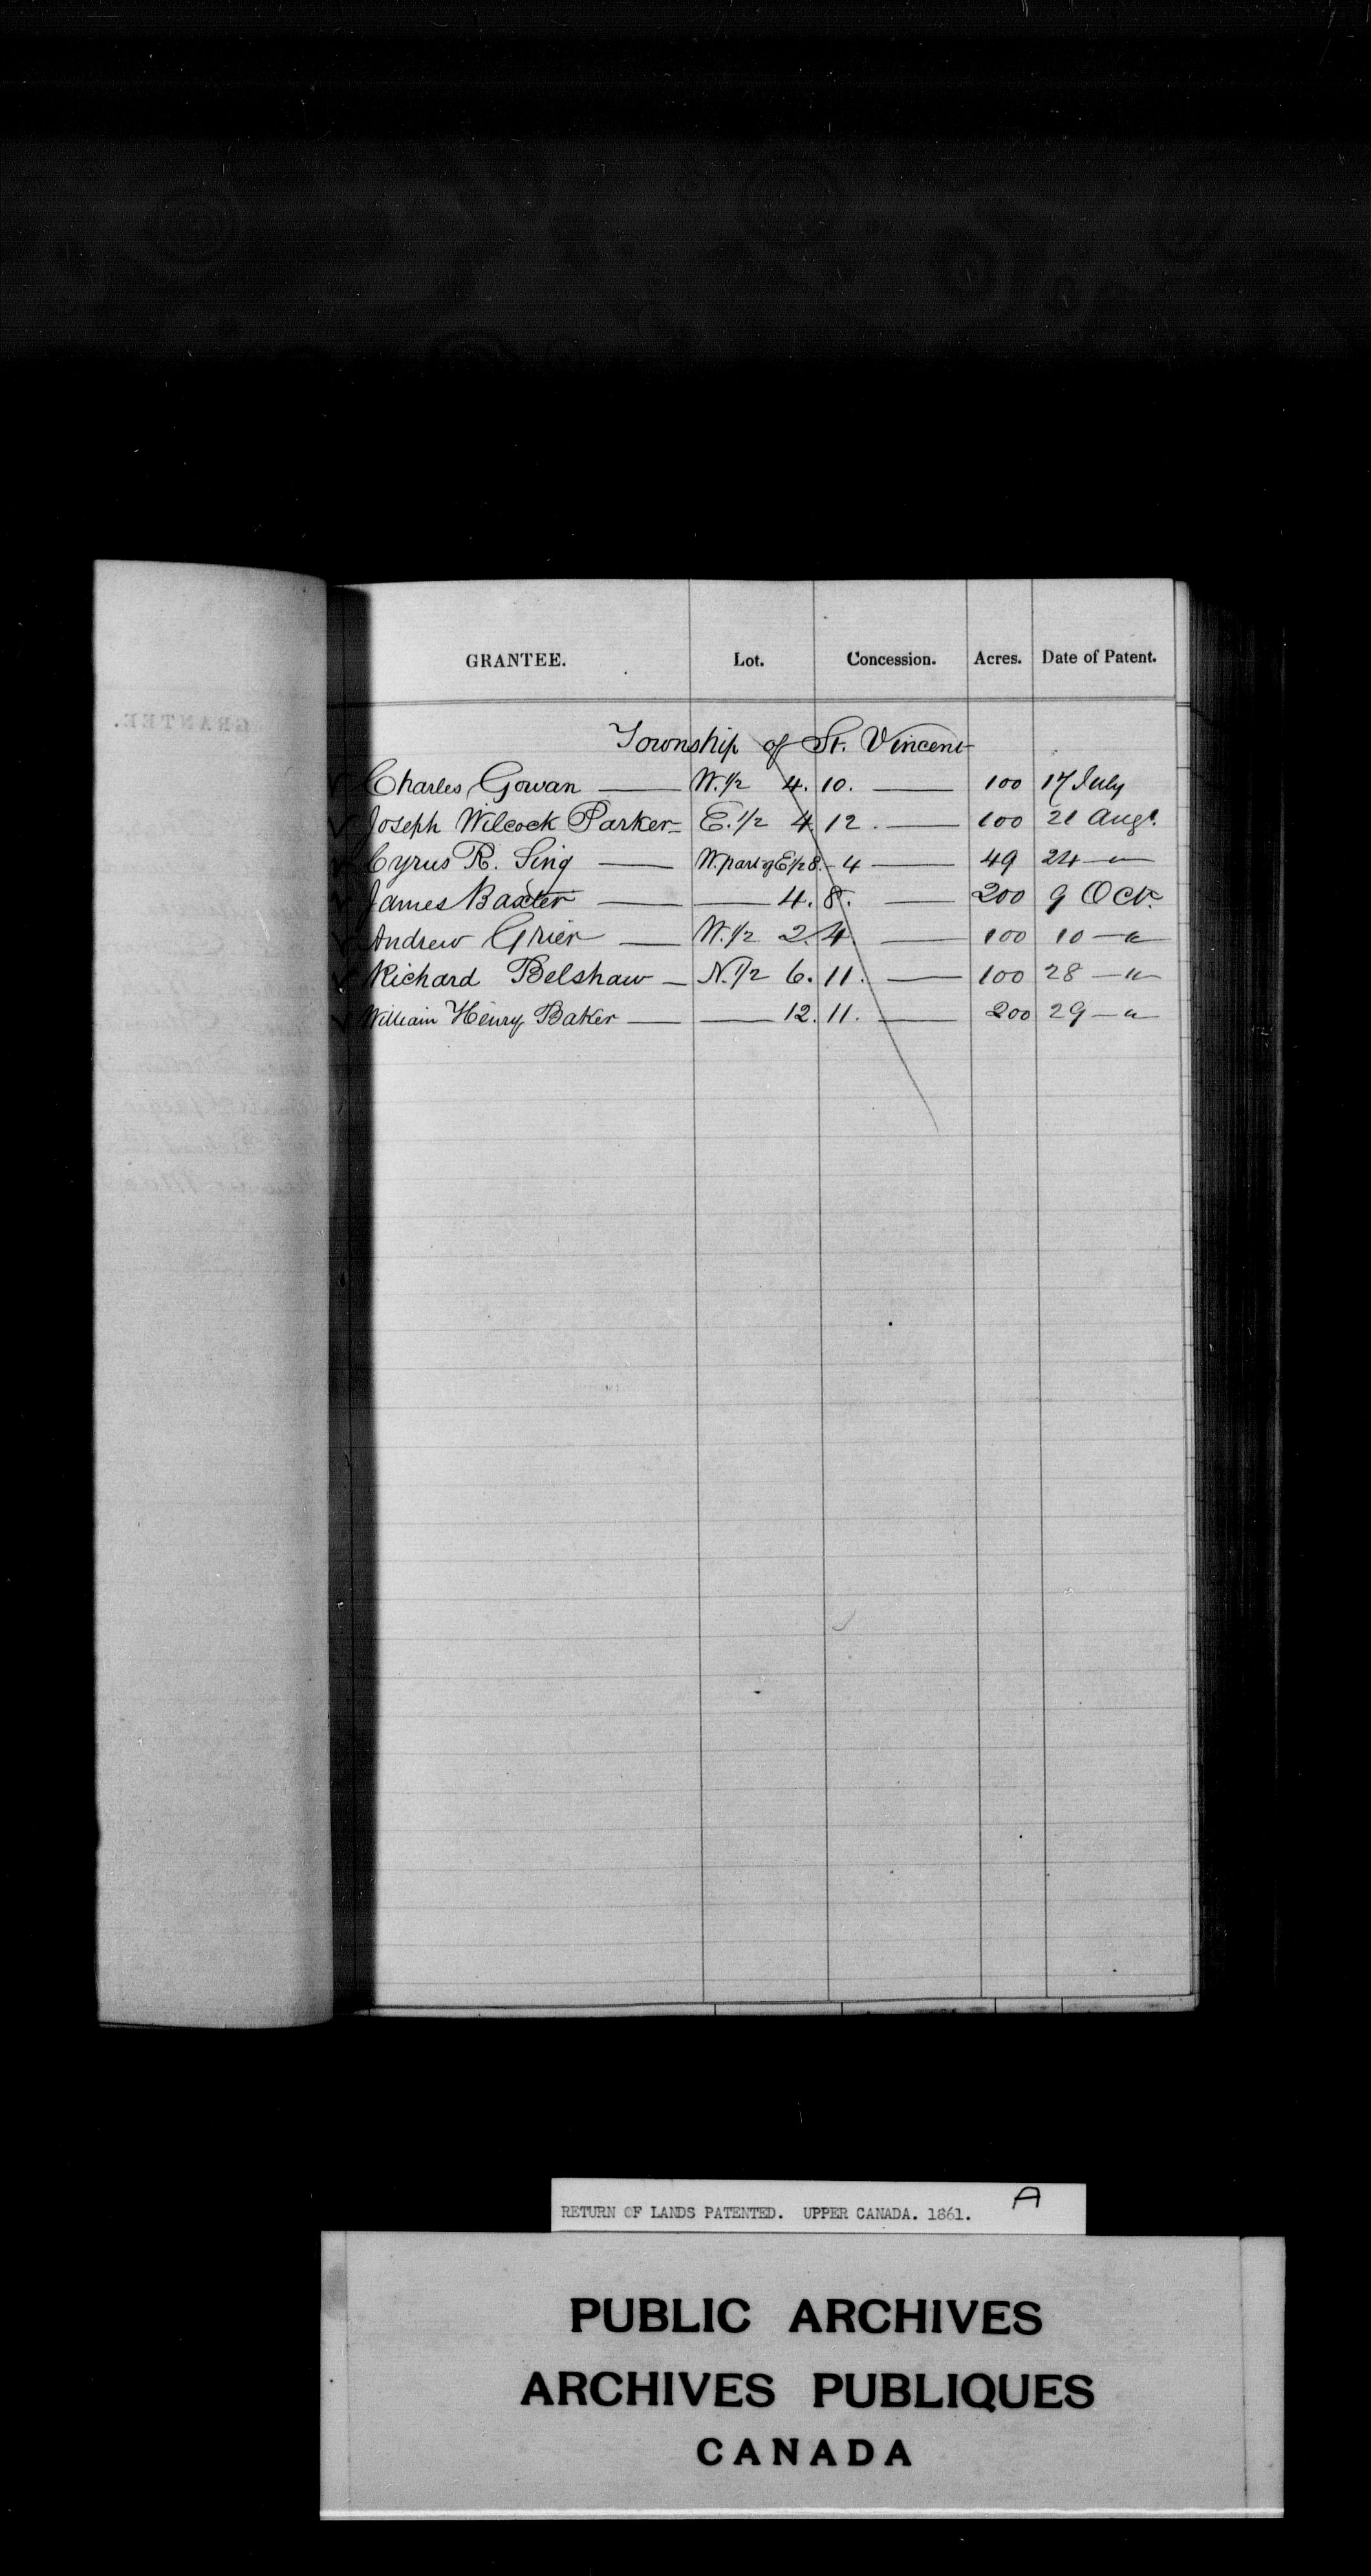 GRANTEE. Lot. Concession. Acres. Date of Patent.
Township of St. Vincent
Charles Gowan — W. 1/2 4. 10. — 100 17 July
Joseph Wilcock Parker — E. 1/2 4 12. — 100 21 Augt.
Cyrus R. Sing — W. part of E 1/2 8. - 4 — 49 24 — "
James Baxter — — 4. 8. — 200 9 Oct.
Andrew Grier — W. 1/2 2. 4. — 100 10 — "
Richard Belshaw — N. 1/2 6. 11. — 100 28 — "
William Henry Baker — — 12. 11. — 200 29 — "
GRANTEE.
RETURN OF LANDS PATENTED. UPPER CANADA. 1861. A
PUBLIC ARCHIVES
ARCHIVES PUBLIQUES
CANADA